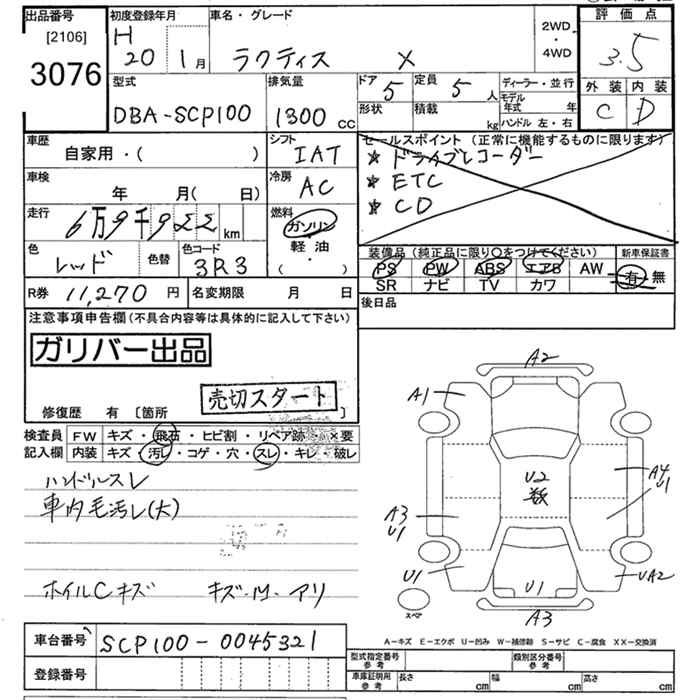 出品番号 [2106] 3076
初度登録年月 H 20年 1月
車名・グレード ラクティス X
2WD・4WD
評価点 3.5
外装 C 内装 D
型式 DBA-SCP100
排気量 1300 cc
ドア 5 定員 5 人
形状 積載 kg
ディーラー・並行
モデル年式 年
ハンドル 左・右
車歴 自家用・( )
シフト IAT
車検 年 月( 日)
冷房 AC
走行 6万9千922 km
燃料 ガソリン 軽油 ・( )
色 レッド 色替 色コード 3R3
R券 11,270 円 名変期限 月 日
セールスポイント (正常に機能するものに限ります)
★ ドライブレコーダー
★ ETC
★ CD
装備品 (純正品に限り○をつけてください) 新車保証書
PS PW ABS エアB AW 有・無
SR ナビ TV カワ
後日品
注意事項申告欄 (不具合内容等は具体的に記入して下さい)
ガリバー出品
売切スタート
修復歴 有 [箇所 ]
検査員 FW キズ・飛石・ヒビ割・リペア跡・×要
記入欄 内装 キズ・汚レ・コゲ・穴・スレ・キレ・破レ
ハンドルスレ
車内毛汚レ(大)
ホイルCキズ キズ・凹・アリ
A2
A1
U2
数
A4
U1
A3
U1
U1
U1
UA2
スペア
A3
A-キズ E-エクボ U-凹み W-補修跡 S-サビ C-腐食 XX-交換済
車台番号 SCP100-0045321
登録番号
型式指定番号 参考 類別区分番号 参考
車庫証明用 参考 長さ cm 幅 cm 高さ cm